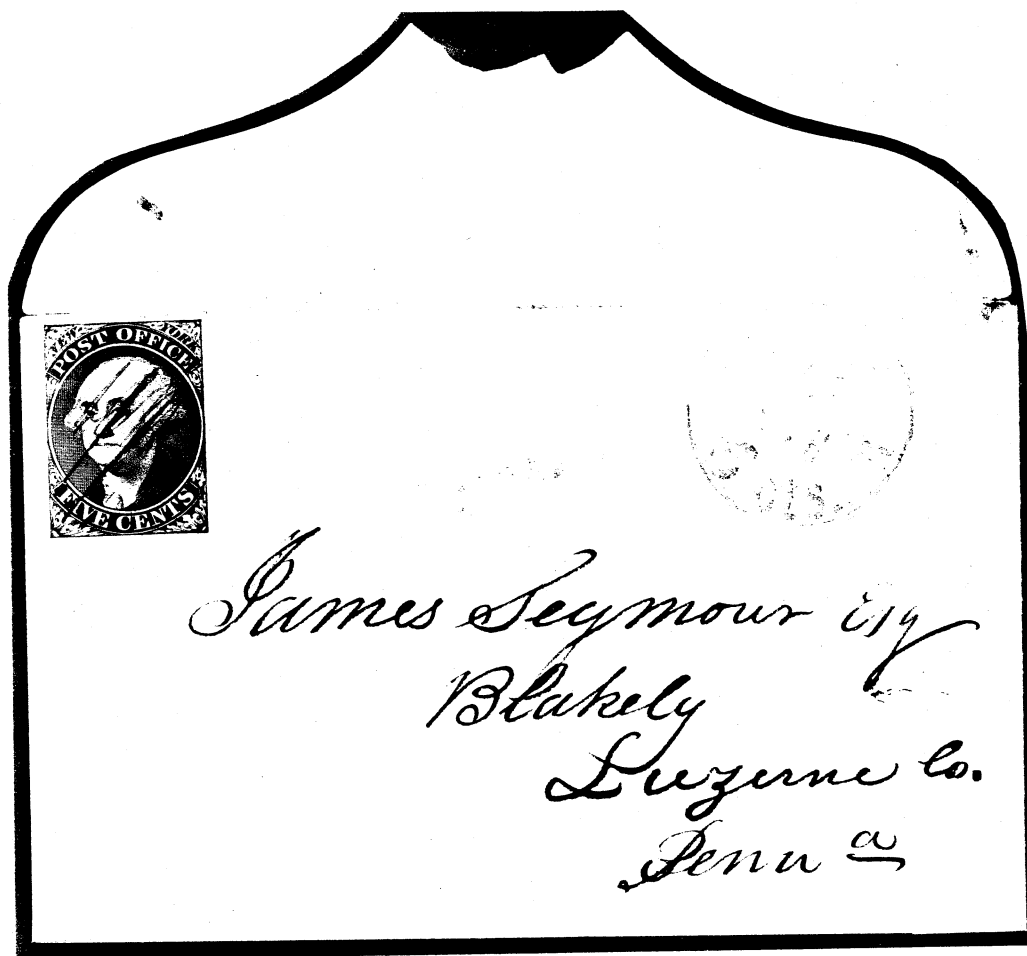 NEW YORK
POST OFFICE
FIVE CENTS
James Seymour Esq
Blakely
Luzerne Co.
Penn a